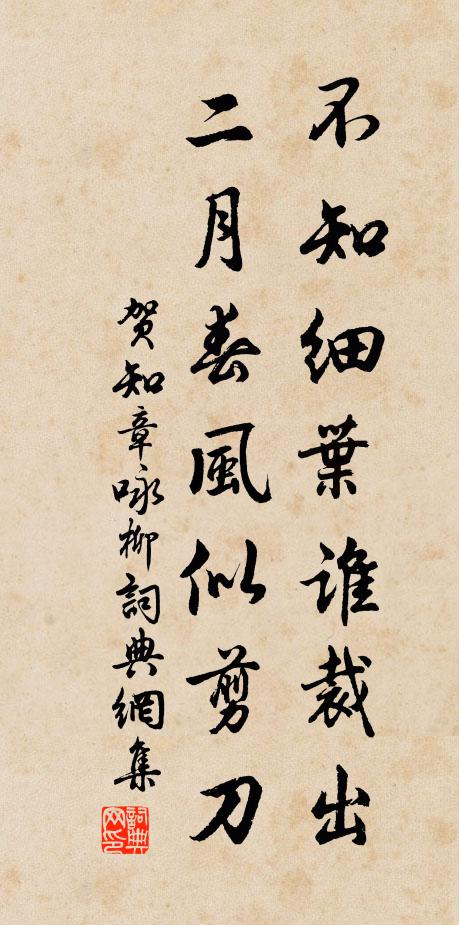 不知細葉誰裁出
二月春風似剪刀
贺知章咏柳詞典網集
詞典網印